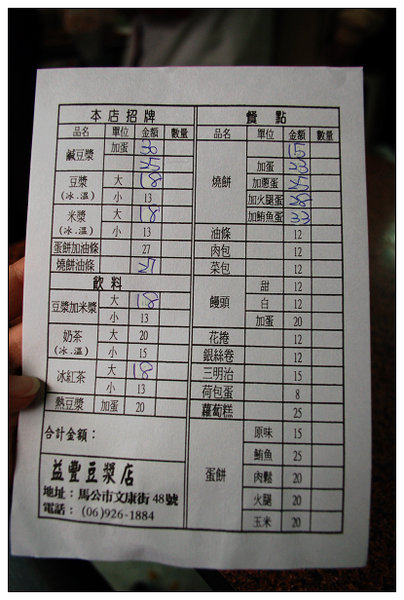 本店招牌
品名 單位 金額 數量
鹹豆漿 加蛋 30
25
豆漿 (冰.溫) 大 18
小 13
米漿 (冰.溫) 大 18
小 13
蛋餅加油條 27
燒餅油條 27
飲料
豆漿加米漿 大 18
小 13
奶茶 (冰.溫) 大 20
小 15
冰紅茶 大 18
小 13
熱豆漿 加蛋 20
合計金額：
益豐豆漿店
地址：馬公市文康街48號
電話：(06)926-1884
餐點
品名 單位 金額 數量
燒餅 15
加蛋 23
加蔥蛋 25
加火腿蛋 28
加鮪魚蛋 33
油條 12
肉包 12
菜包 12
饅頭 甜 12
白 12
加蛋 20
花捲 12
銀絲卷 12
三明治 15
荷包蛋 8
蘿蔔糕 25
蛋餅 原味 15
鮪魚 25
肉鬆 20
火腿 20
玉米 20